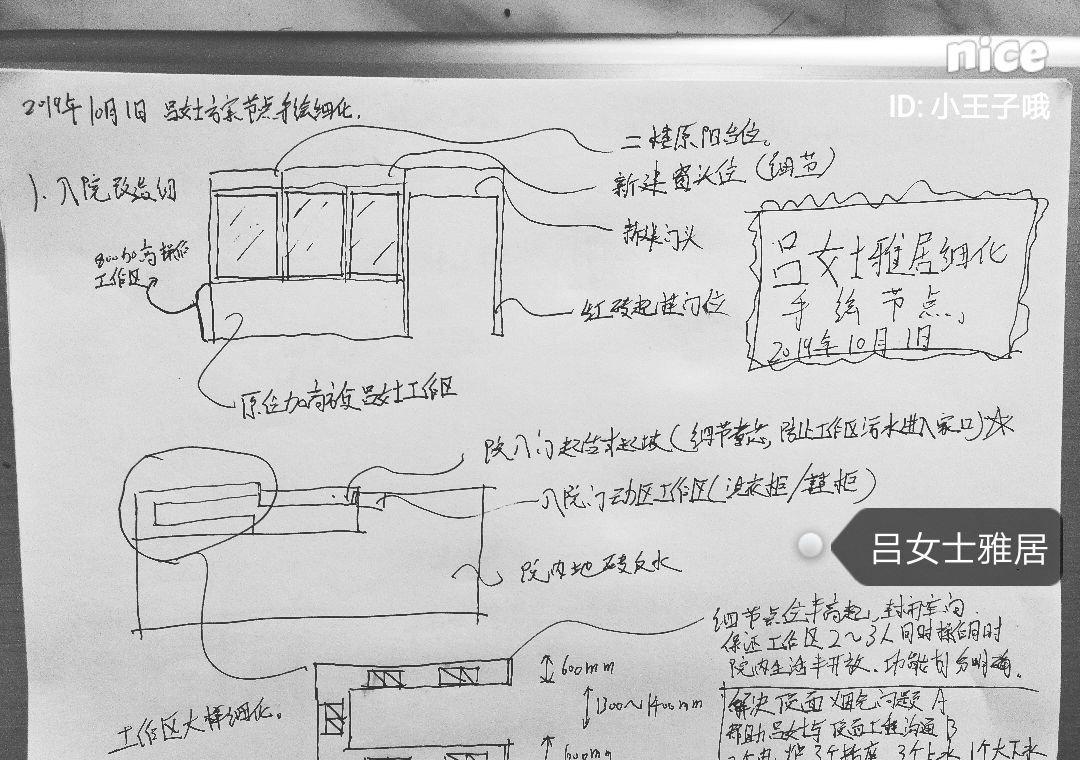 nice
ID: 小王子哦
2019年10月1日 吕女士方案节点手绘细化.
1、入院改造细
二楼原阳台位。
新建窗头位(细节)
新建门头
红砖起建门位
800加高操作
工作区
原位加高放变吕女士工作区
吕女士雅居细化
手绘节点、
2019年10月1日
院入门起台或起坡(细节考虑,防止工作区污水进入家口)☆
入院门动区工作区(洗衣柜/鞋柜)
院内地砖反水
吕女士雅居
细节点位半高起,封闭空间
保证工作区2~3人同时操作同时
院内生活半开放、功能划分明确。
600mm
1300~1400mm
600mm
工作区大样细化。
解决顶面烟气问题 A
帮助吕女士与顶面工程沟通 B
3个插座 3个上水 1个大下水